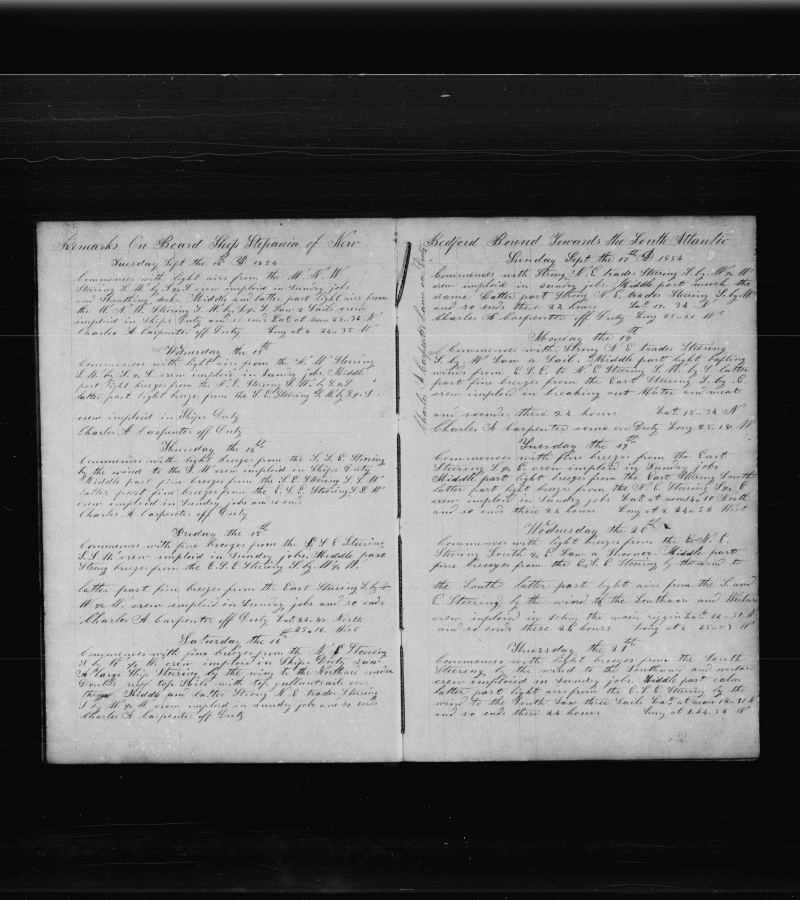 Remarks On Board Ship Stepania of New
Tuesday Sept the 12th 1854
Commences with light airs from the W. N W
Steering S. W by S & S crew imploid in Sundry jobs
and Sheathing deck. Middle and latter part light airs from
the W. N. W Steering S. W. by S & S. Saw 2 Sails crew
imploid in Ships Duty and so ends Lat at noon 25=36 N
Charles A Carpenter off Duty Long at 2 24=35 W
Wensday the 13th
Commences with light airs from the N. W Steering
S. W by S. & S. crew imploid in Sundry jobs Middle
part light breezes from the N. E. Steering S. W. by S & S
latter part light breeze from the S. E. Steering S. W by S & S
crew imploid in Ships Duty
Charles A Carpenter off Duty
Thursday the 14th
Commences with light breezes from the S. S. E. Steering
by the wind to the S. W crew imploid in Ships Duty
Middle part fine breezes from the S. E Steering S. S. W
latter part fine breezes from the E. S. E. Steering S. S. W
crew imploid in Sundry jobs and so ends
Charles A Carpenter off Duty
Friday the 15th
Commences with fine breezes from the E S E Steering
S. S. W crew imploid in Sundry jobs. Middle part
Strong breezes from the E. S. E Steering S. by W & W.
latter part fine breezes from the East Steering S. by
W & W. crew imploid in Sundry jobs and so ends
Charles A Carpenter off Duty Lat 22=40 North
25=16 West
Saturday the 16th
Commences with fine breezes from the N. E Steering
S. by W & W crew imploid in Ships Duty saw
A large Ship Steering by the wing to the Northard under
Double reef top Sails with top gallantsails over
them Middle and latter Strong N. E trades Steering
S. by W & W crew imploid in Sundry jobs and so ends
Charles A Carpenter off Duty
Charles A Carpenter Came on Duty
Bedford Bound Towards the South Atlantic
Sunday Sept the 17th 1854
Commences with Strong N. E trades Steering S. by W & W
crew imploid in sundry jobs Middle part much the
same Latter part Strong N. E. trades Steering S. by W
and so ends these 24 hours
Charles A Carpenter off Duty Long 25=20 W
Monday the 18th
Commences with Strong N. E trades Steering
S. by W Saw a Sail. Middle part light bafling
winds from E. S. E. to N. E Steering S. W. by S. latter
part fine breezes from the East Steering S. by E.
crew imploid in breaking out Water and meat
and so ends these 24 hours Lat 15=34 N
Charles A Carpenter come on Duty Long 25=18 W
Tuesday the 19th
Commences with fine breezes from the East
Steering S. & E. crew imploid in Sundry jobs
Middle part light breezes from the East Steering South
latter part light breezes from the N. E Steering S. & E
crew imploid in Sundry jobs Lat at noon 14=10 North
and so ends these 24 hours Long at 2 24=52 West
Wednesday the 20th
Commences with light breezes from the E. N. E.
Steering South & E Saw a Shooner. Middle part
fine breezes from the E. S. E Steering by the wind to
the South latter part light airs from the S. and
E. Steering by the wind to the Southward and Westard
crew imploied in Seting the main riggin Lat 12=51 N
and so ends these 24 hours Long at 2 25=03 W
Thursday the 21st
Commences with light breezes from the South
Steering by the wind to the Southward and wester
crew imploied in Sundry jobs. Middle part calm
latter part light airs from the E. S E Steering by the
wind to the South Saw three Sails Lat at noon 12=31 N
and so ends these 24 hours Long at 2 24.52 W